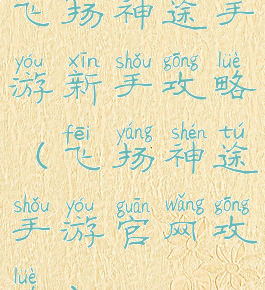 飞扬神途手
yóu xīn shǒu gōng lüè
游新手攻略
fēi yáng shén tú
（飞扬神途
shǒu yóu guān wǎng gōng
手游官网攻
lüè